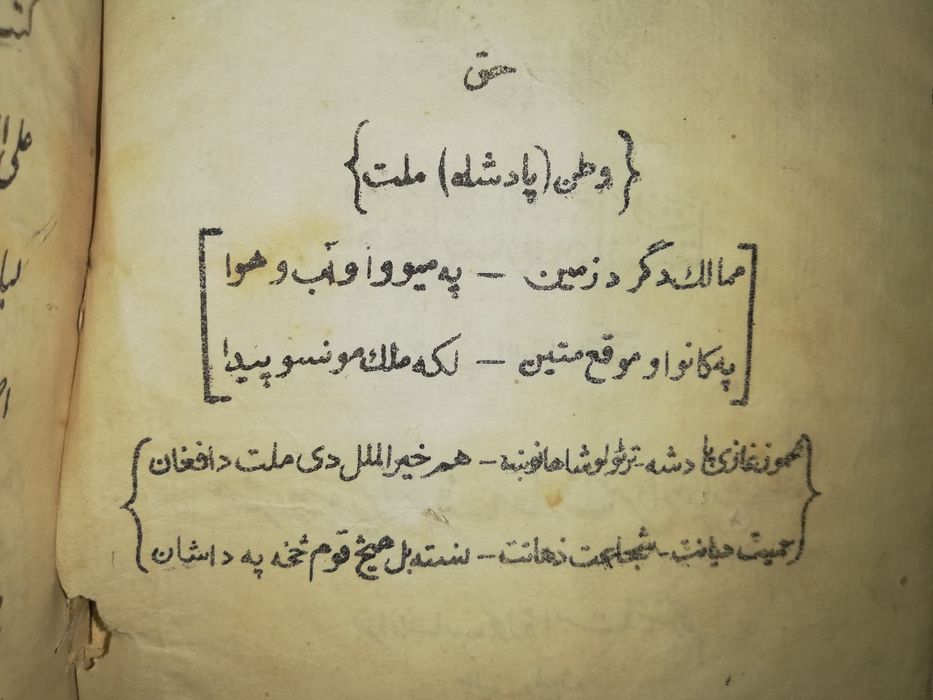 حق
{وطن (پادشاه) ملت}
[ممالك دگر د زمین — په میوو او آب و هوا
په كانو او موقع متین — لكه ملك مو نسو پیدا]
{زموږ غازی پادشه - تر ټولو شاهانو ښه - هم خیر الملل دی ملت د افغان
حمیت دیانت - شجاعت ذهانت - نسته بل هیڅ قوم څخه په دا شان}
علی